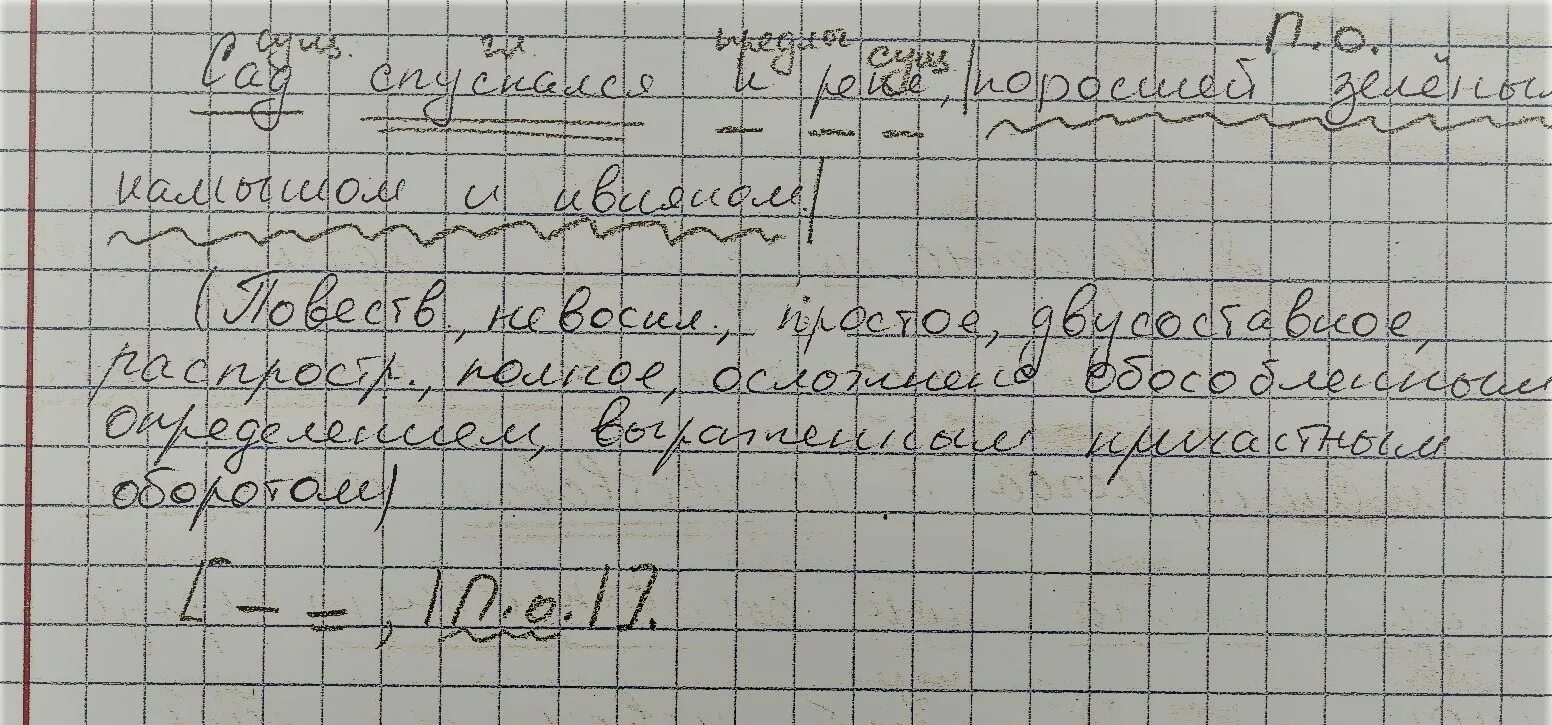 сущ. гл предлог сущ П.о.
Сад спускался к реке, |поросшей зелёным
камышом и ивняком.|
(Повеств., невоскл., простое, двусоставное,
распростр., полное, осложнено обособленным
определением, выраженным причастным
оборотом)
[– =, |П.о.|].